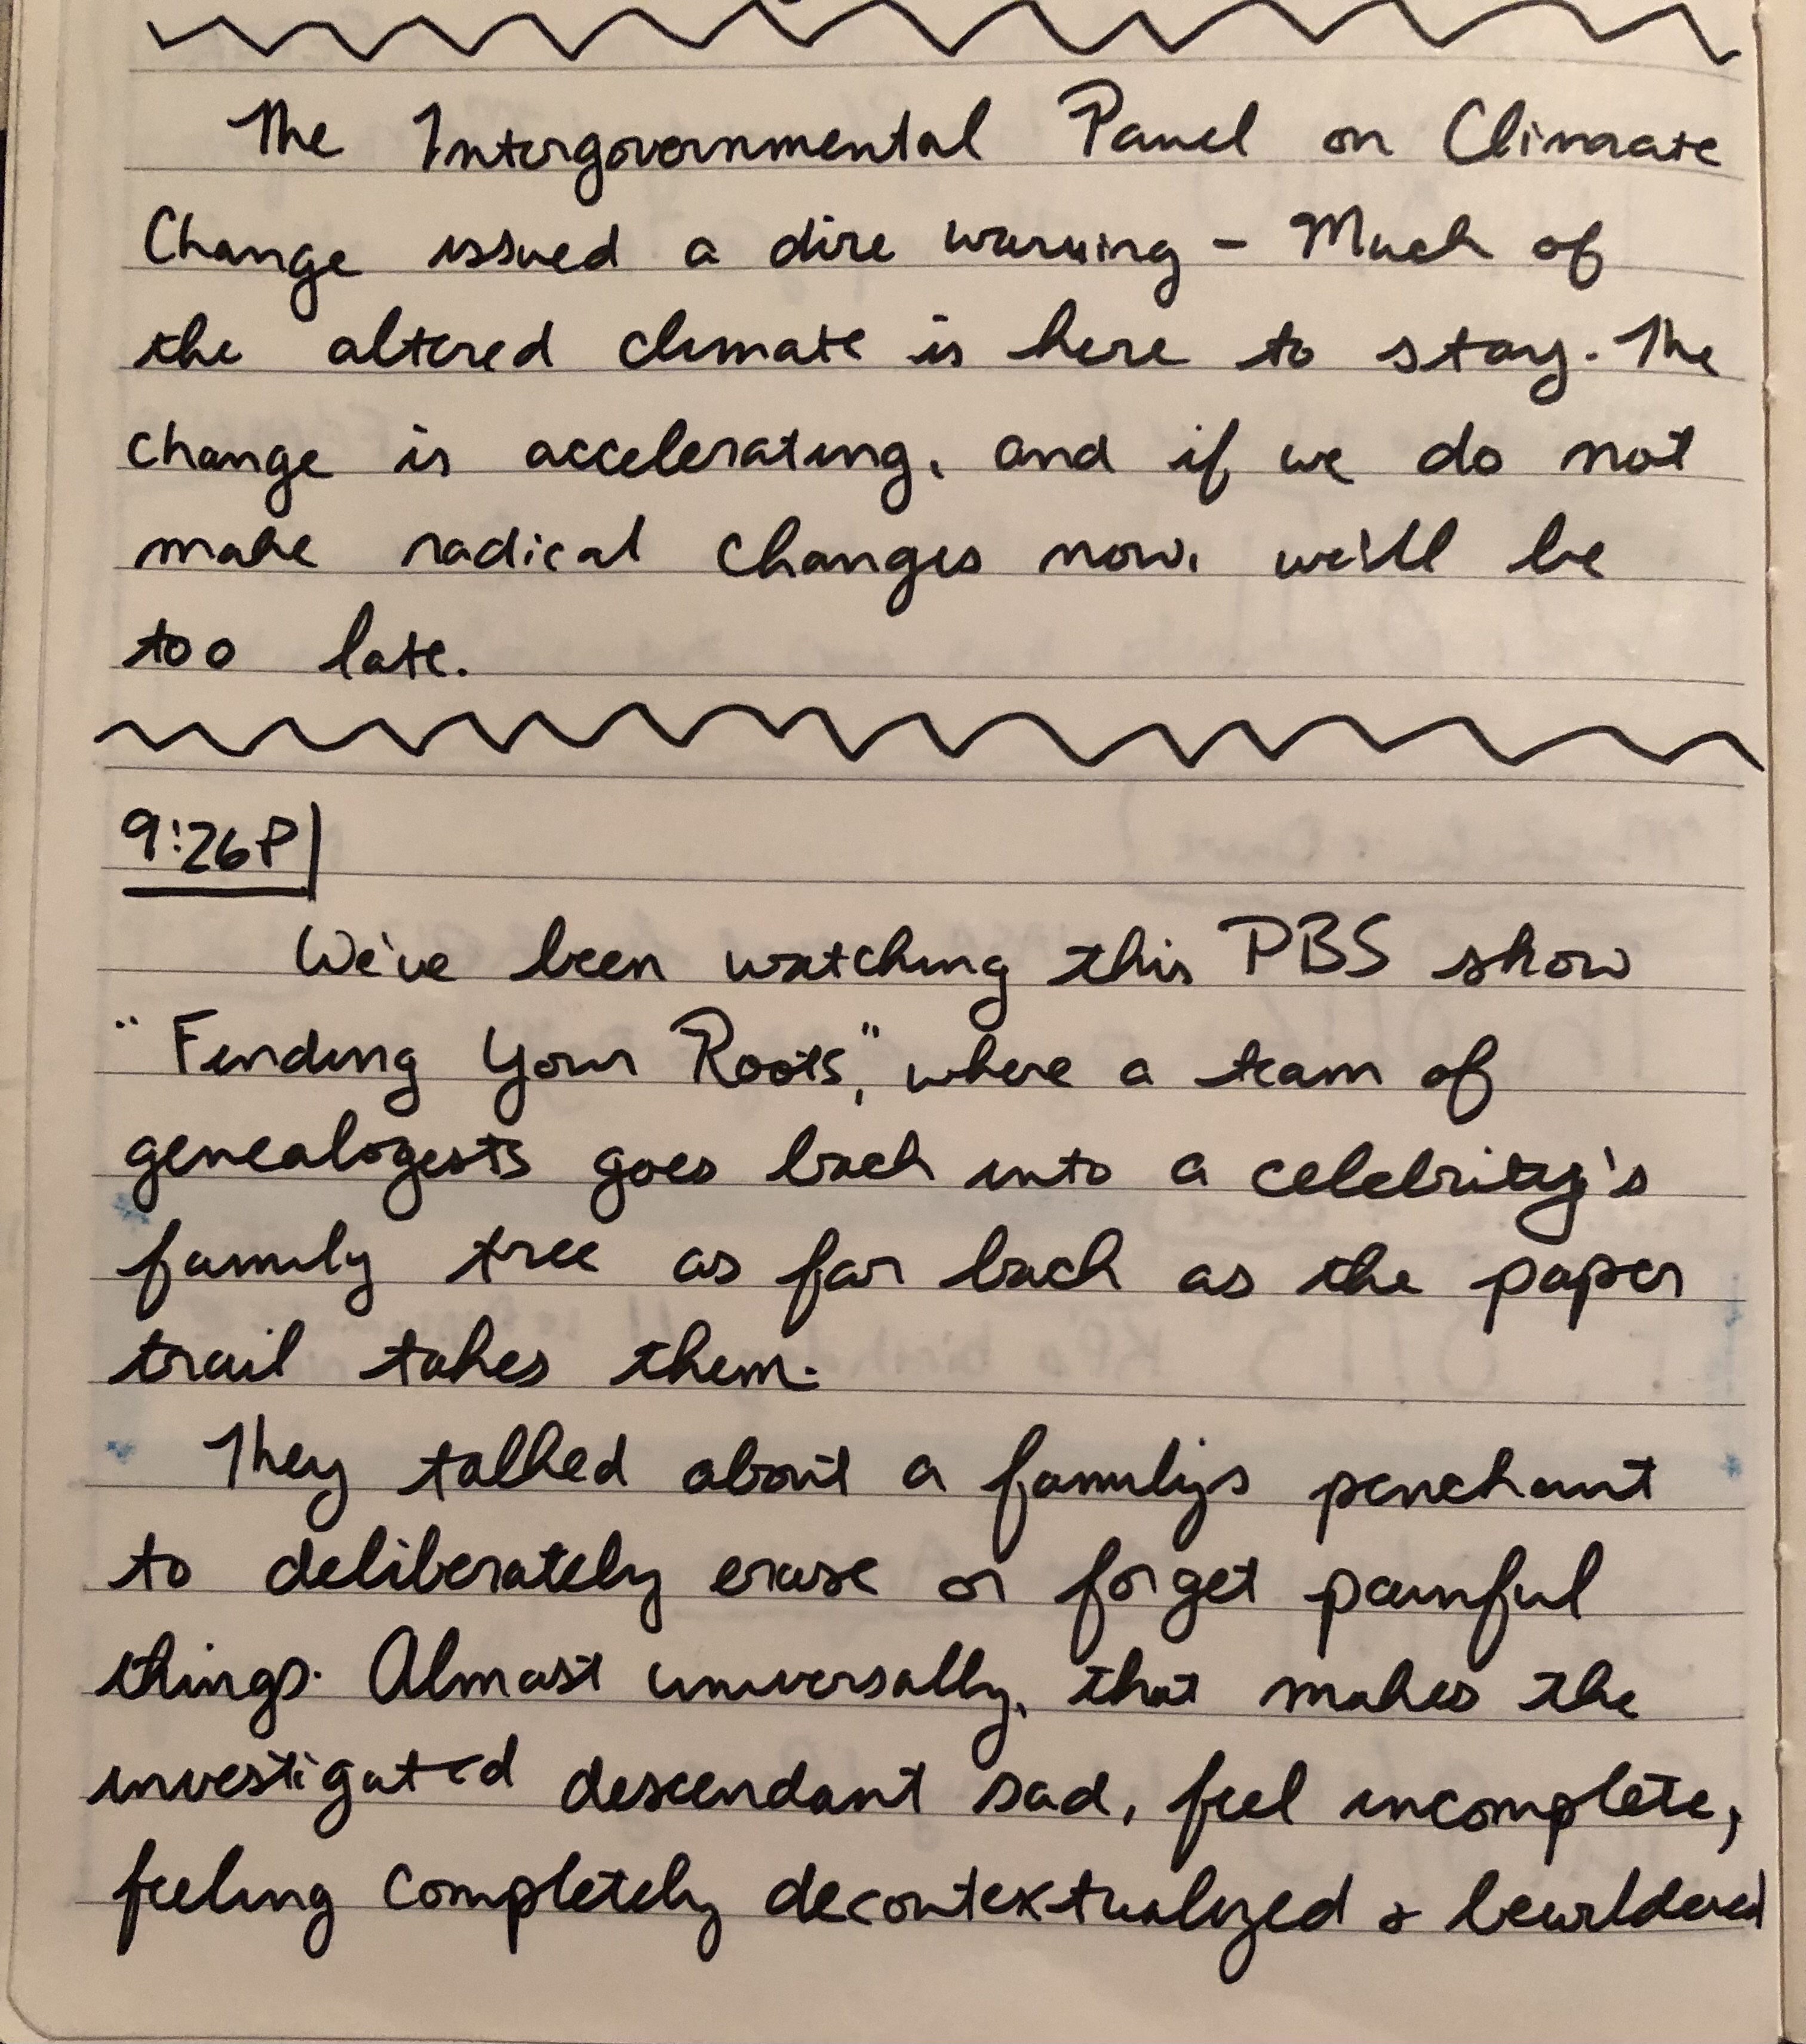 The Intergovernmental Panel on Climate
Change issued a dire warning – Much of
the altered climate is here to stay. The
change is accelerating, and if we do not
make radical changes now, we'll be
too late.
9:26P
We've been watching this PBS show
"Finding Your Roots," where a team of
genealogists goes back into a celebrity's
family tree as far back as the paper
trail takes them.
They talked about a family's penchant
to deliberately erase or forget painful
things. Almost universally, that makes the
investigated descendant sad, feel incomplete,
feeling completely decontextualized & bewildered